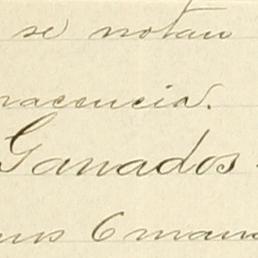 se notan
nacencia.
Ganados
6 man